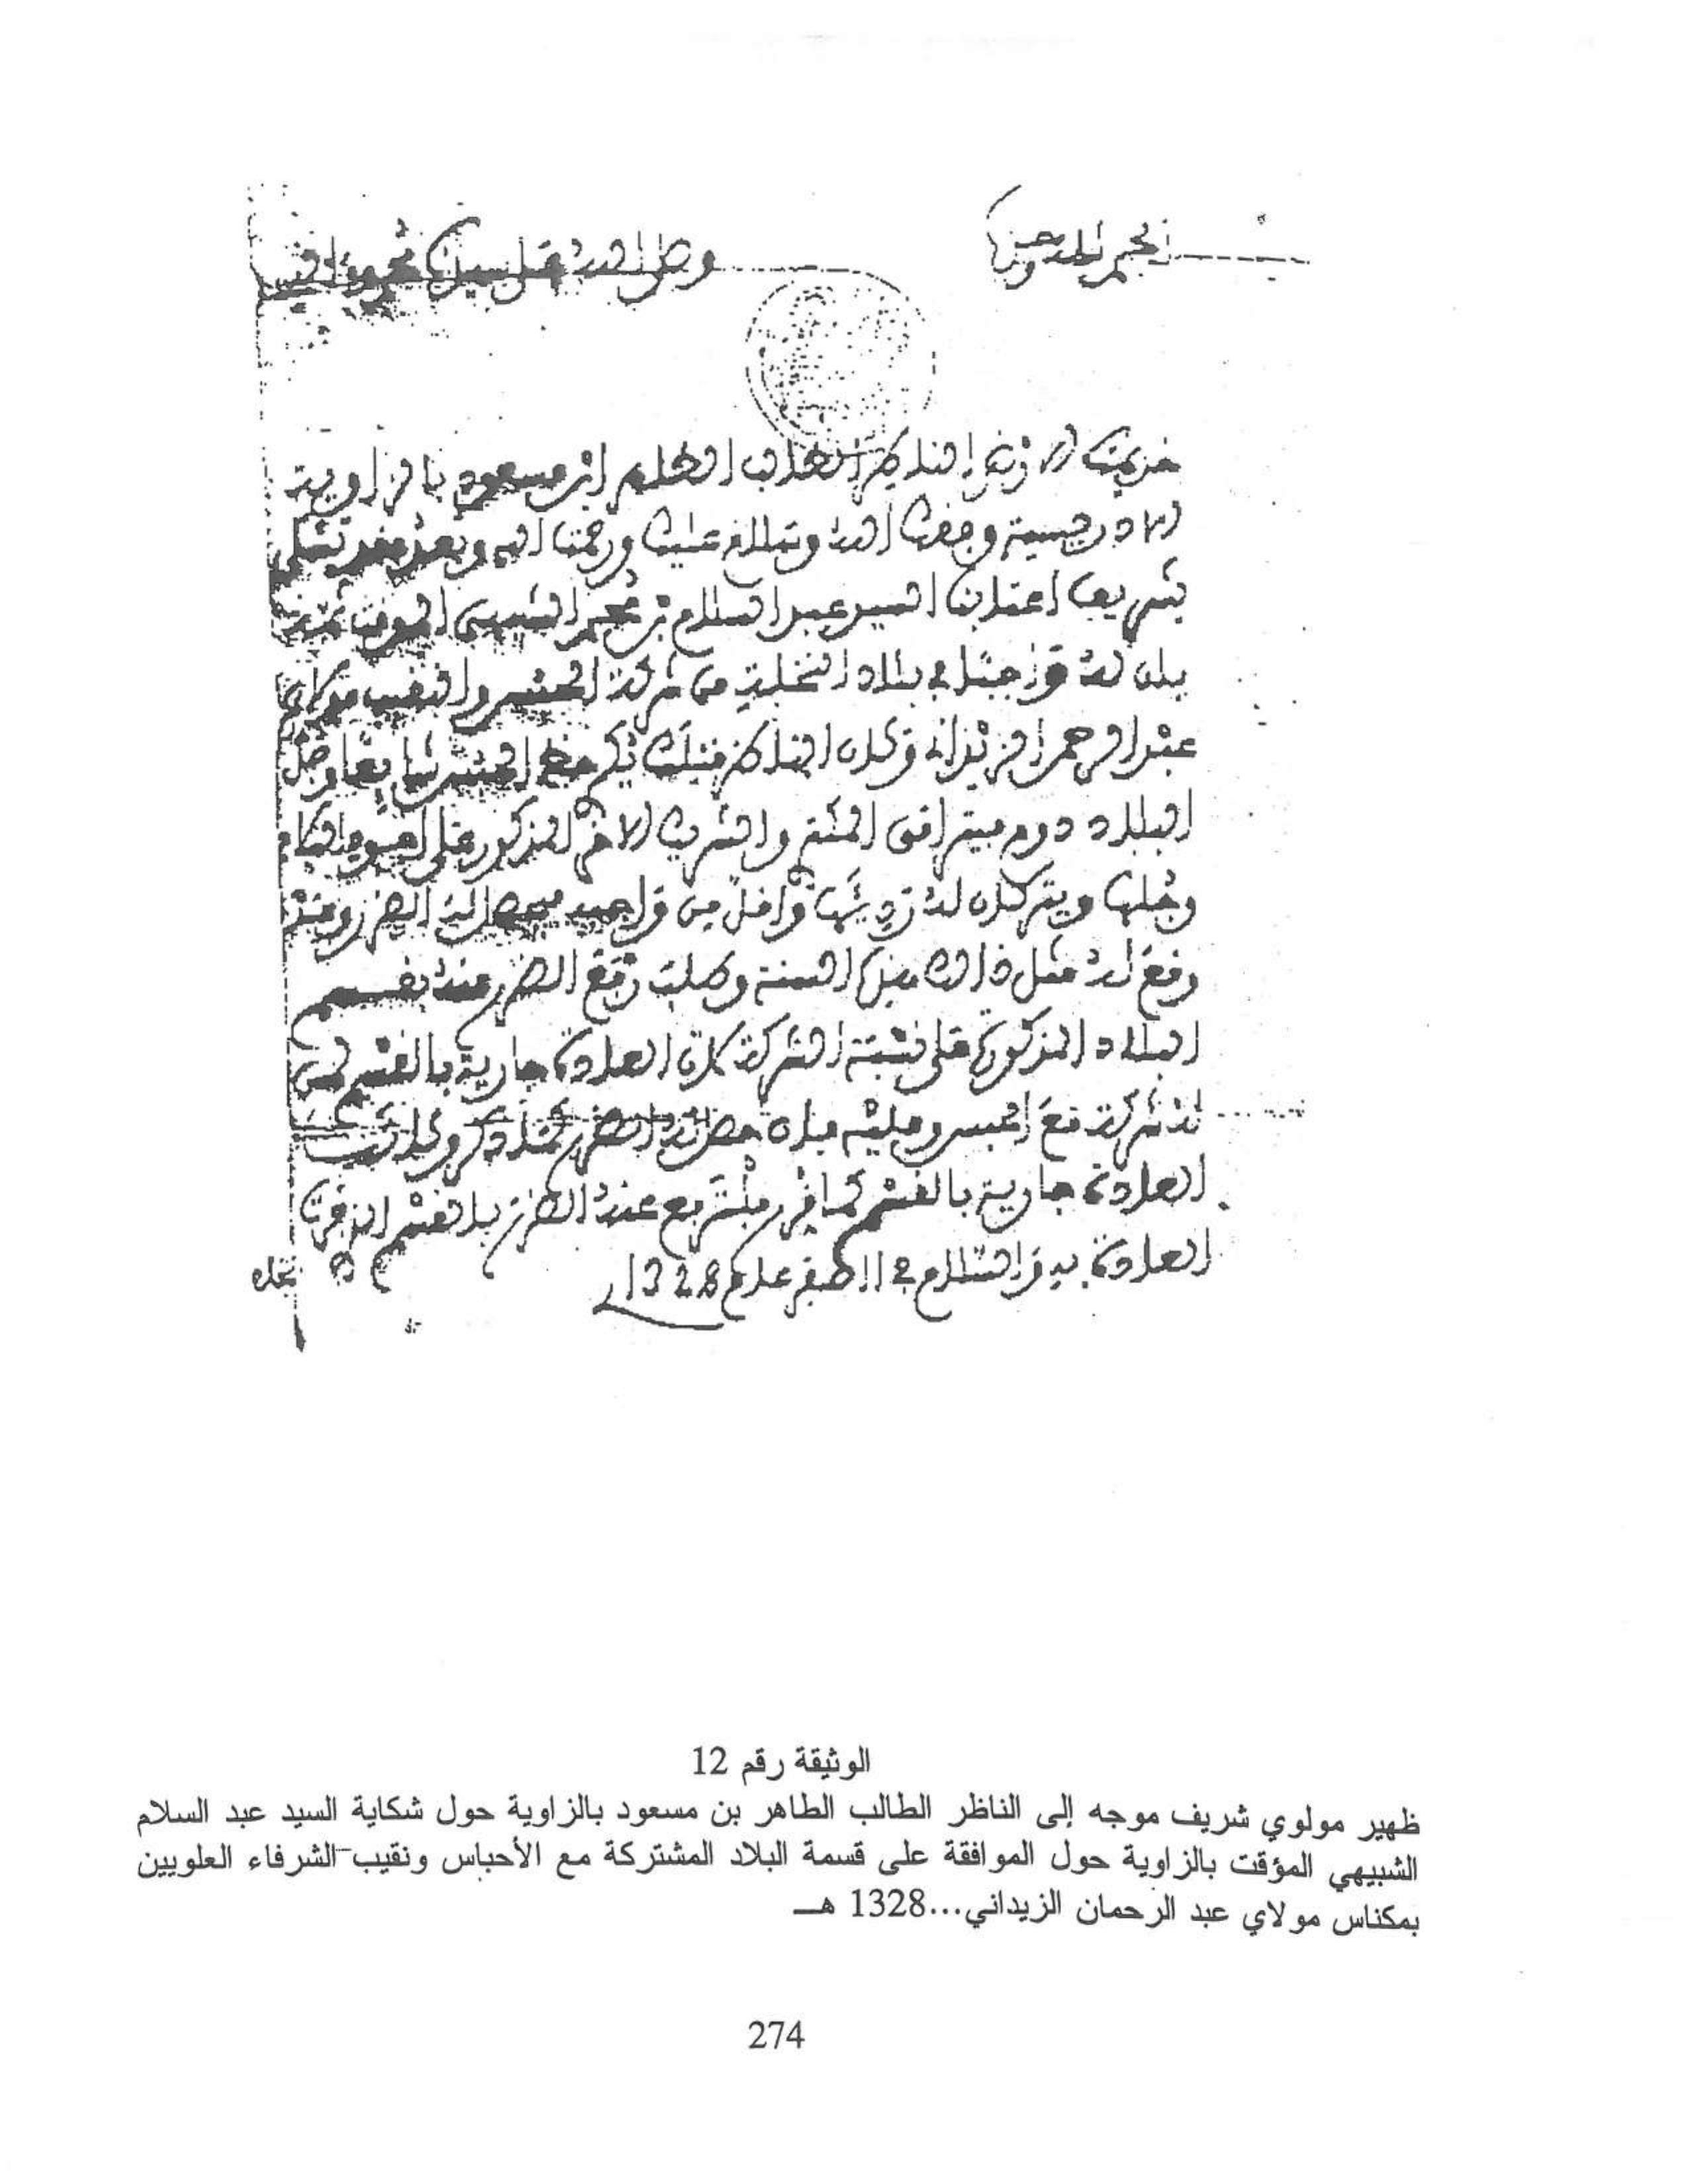 الحمد لله وحده
وصلى الله على سيدنا محمد وآله
خديمنا الأرضى الناظر الطالب الطاهر ابن مسعود بالزاوية
الادريسية وفقك الله وسلام عليك ورحمت الله وبعد فقد تشكى
بشريف اعتابنا السيد عبد السلام بن محمد الشبيهي الموقت
بان له واجبا في بلاد النخلية من شركة الحبس والنقيب مولاي
عبد الرحمن الزيداني وكان الناظر قبلك يكري حظ الحبس
البلاد دوم ميتر افى المئة والشريك الاخر المذكور على
وجلها ويتركان له واقل من واجبه فيحصل له الضرر ومنه
وقع له مثل ذالك هذه السنة وطلب رفع الضرر عنه بقسم
البلاد المذكورة على نسبة الشركة كان العادة جارية بالقسم لمن
له شركة مع الحبس وعليه فان حصل له الضرر بما ذكر وكانت
العادة جارية بالقسم كما قرر فلترفع عنه الضرر بالقسم الذي قررت
العادة به والسلام في 11 صفر عام 1328
الوثيقة رقم 12
ظهير مولوي شريف موجه إلى الناظر الطالب الطاهر بن مسعود بالزاوية حول شكاية السيد عبد السلام
الشبيهي المؤقت بالزاوية حول الموافقة على قسمة البلاد المشتركة مع الأحباس ونقيب الشرفاء العلويين
بمكناس مولاي عبد الرحمان الزيداني...1328 هـ
274